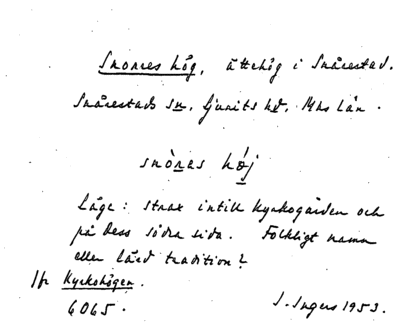 Snorres hög, ättehög i Snårestad.
Snårestads sn, Ljunits hd, Mhs län.
snòras hǿj
Läge: strax intill kyrkogården och
på dess södra sida. Folkligt namn
eller lärd tradition?
Jfr Kyrkohögen.
6065. I. Ingers 1953.